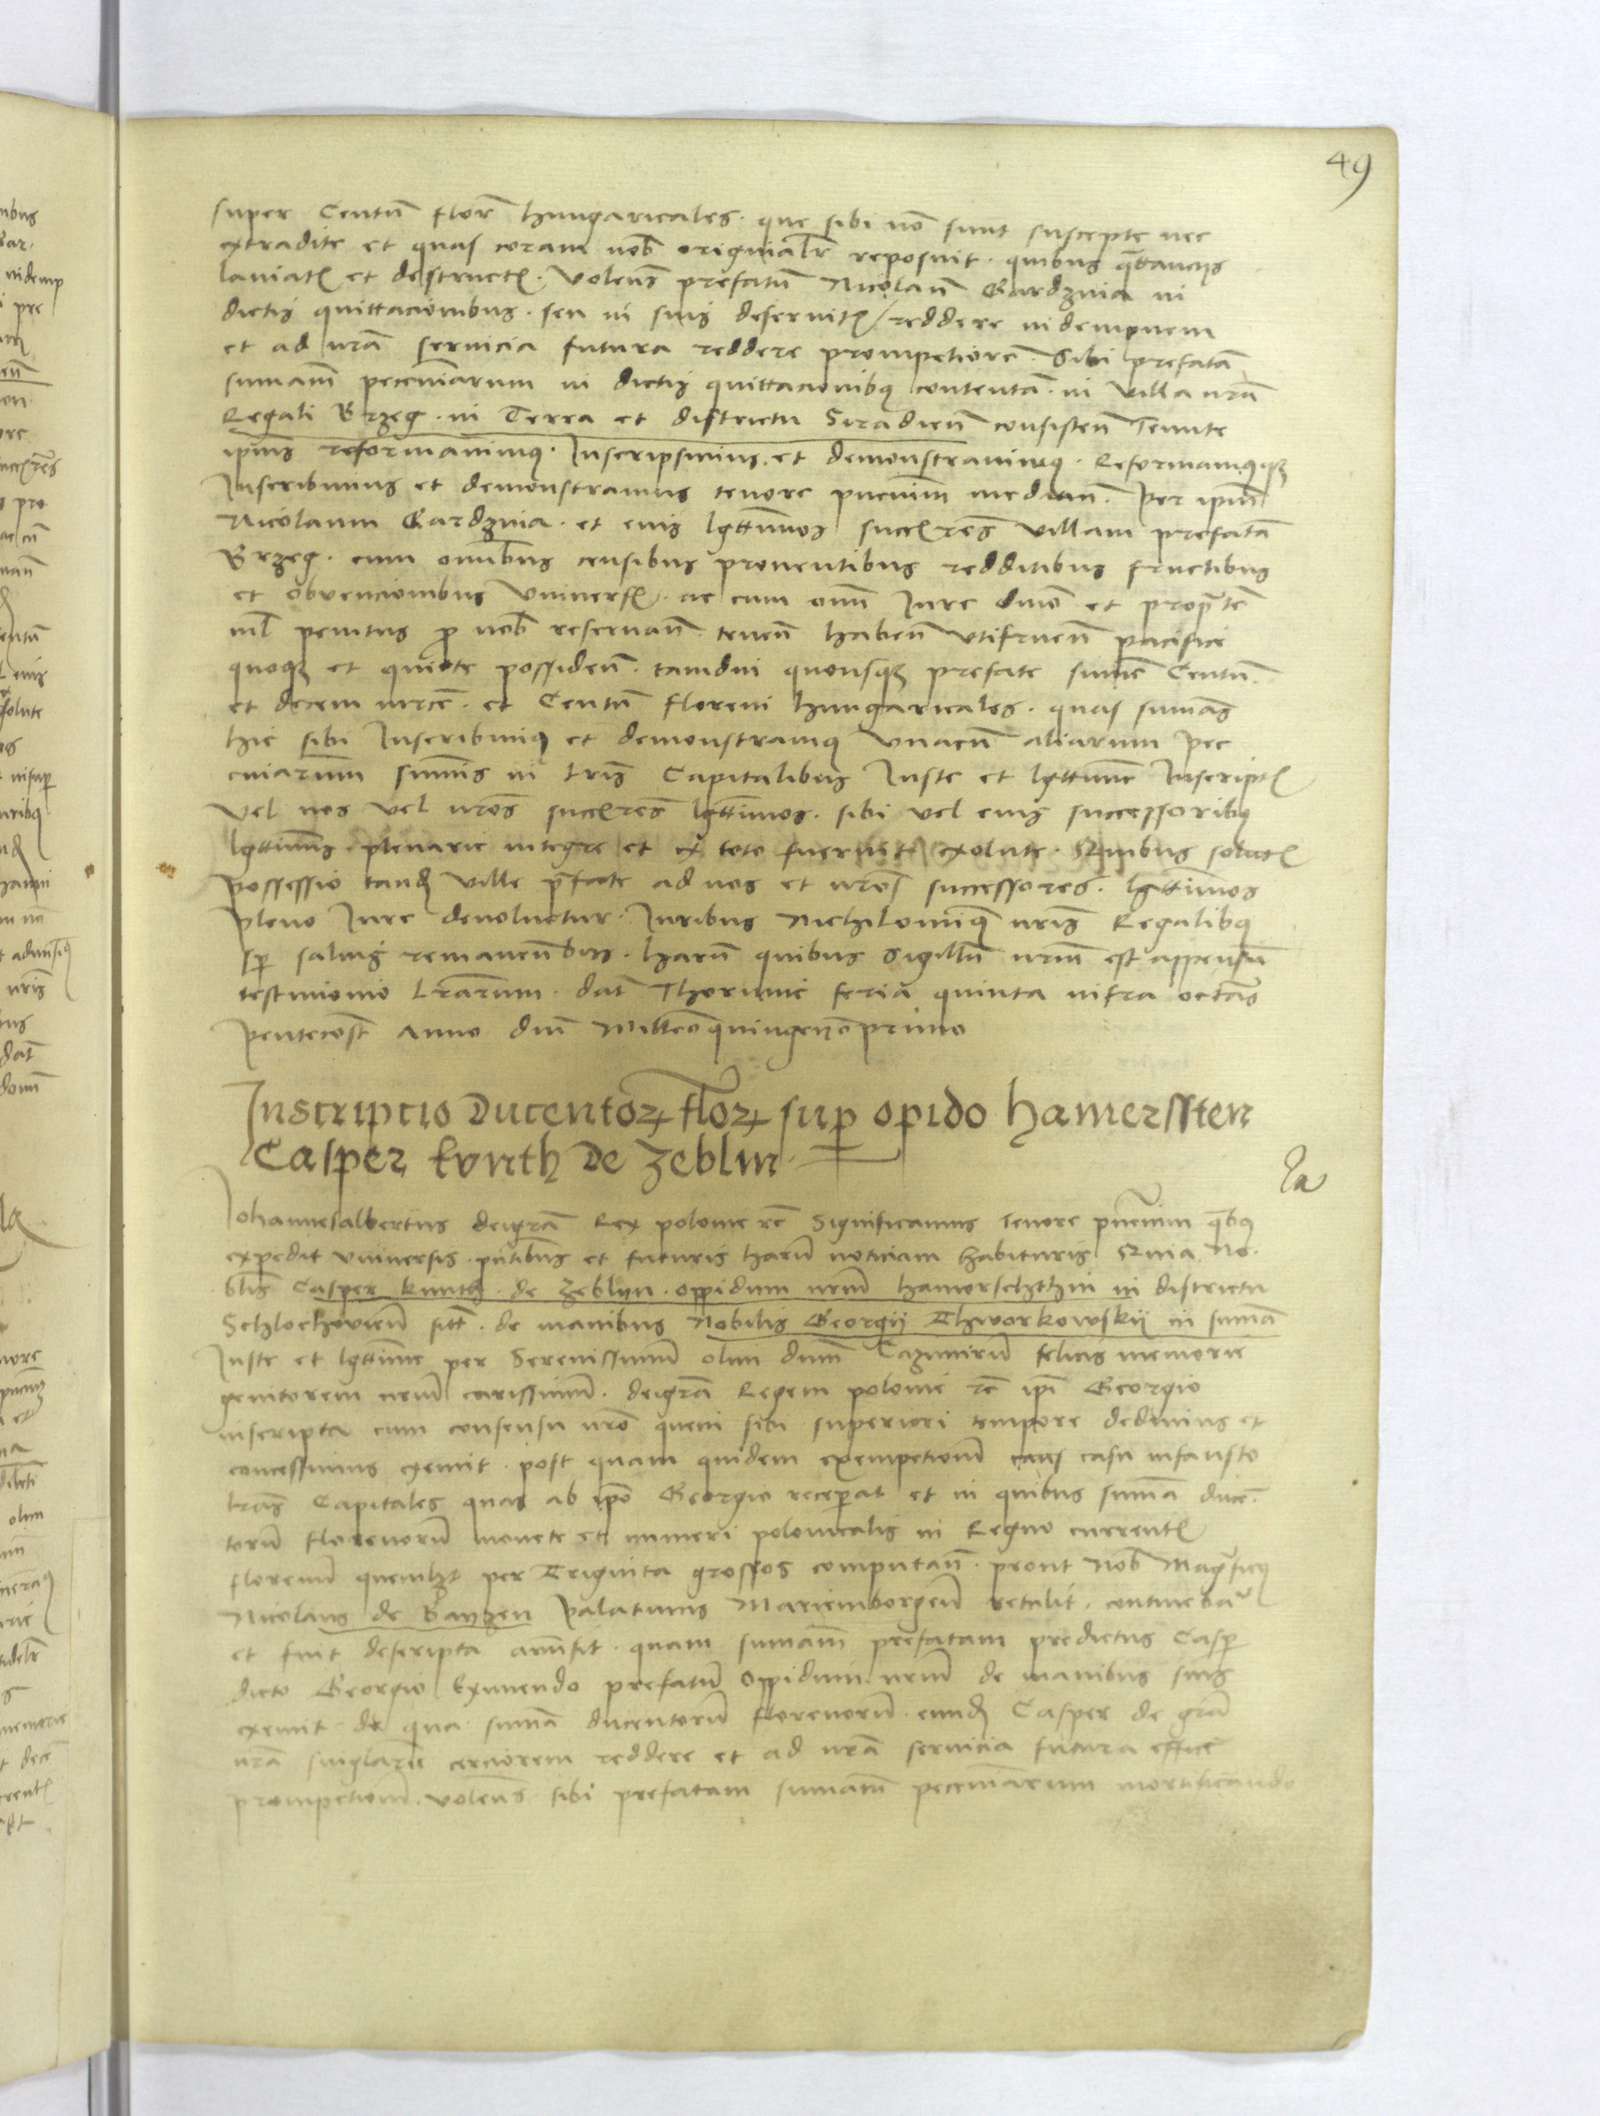 49
super Centū florē hungaricales. que sibi nō sunt suscepte nec
extradite et quas coram nob originalr reposuit. quibus qttanciis
laniatȩ et destructȩ. Volens prefatū Nicolaū Gardzina in
dictis quittacionibus. seu in suis deservitȩ / reddere indempnem
et ad nrā servicia futura reddere prompciorē. Sibi prefatā
sumam pecuniarum in dictis quittacionibȝ contentā. in villa nrā
Regali Brzeg. in Terra et districtu Siradieñ consisteñ Tenute
ipius reformavimȝ. Inscripsimus. et demonstravimȝ. Reformamȝqȝ
Inscribimus et demonstramus tenore pñcium mediañ. Per ipm̄
Nicolaum Gardzina. et eius lgttimos succres villam prefatā
Brzeg. cum omībus censibus proventibus redditibus fructibus
et obvencionibus Universȩ. ac cum omi Iure dnio et propte
nil penitus ꝑ nob reservañ teneñ habeñ utifrueñ pacifice
quoqȝ et quiete possideñ. tamdiu quousqȝ prefate sume Centū
et decem mrce. et Centū floreni hungaricales. quas sumās
hic sibi Inscribimȝ et demonstramȝ unacū aliarum pec
cuniarum sumis in lris Capitalibus Iuste et lgttime Inscriptȩ
Vel nos vel nros succres lgttimos. sibi vel eius successoribȝ
lgttimis plenarie integre et ex toto fuerint exolute. Quibus solutȩ
possessio eiusdē ville pfate ad nos et nros successores. lgttimos
pleno Iure devolvetur. Iuribus Nichilominȝ nris Regalibȝ
sꝑ salvis remanentibus. harū quibus Sigillū nrm est appensū
testimonio lrarum. dat Thorunie feria quinta infra octās
pentecost Anno dni Millesoquingeñoprimo
Inscripcio Ducentoꝝ floꝝ suꝑ opido hamerssten
Casper kvnth de Zeblin
Johannesalbertus deigrā Rex polonie rc̄ Significamus Tenore pñcium qbȝ
expedit universis. pñtibus et futuris harū noticiam habituris Quia No.
blis Casper kunth. de Zeblyn. oppidum nrm̄ hamerschthin in districtu
Schlochovieñ sitt. de manibus Nobilis Georgii Thworkowskii in sumā
Iuste et lgttime per Serenissimū olim dnm̄ Cazimirū felicis memorie
genitorem nrm̄ carissimū. deigrā Regem polonie rc̄ ipi Georgio
inscripta cum consensu nro quem sibi superiori tempore dedimus et
concessimus exemit. post quam quidem exempcionē casu infausto
lras Capitales quas ab ipo Georgio receperat et in quibus suma ducē.
torū florenorū monete et numeri polonicalis in Regno currentȩ
florenū quemlȝt per Triginta grossos computañ. prout Nob Magficȝ
Nicolaus de Bayzen Palatinus Mariemborgeñ retulit. continebatr
et fuit descripta amisit. quam sumam prefatam predictus Casper
dicto Georgio Eximendo prefatū Oppidum nrm̄ de manibus suis
exemit de qua suma ducentorū florenorū eundē Casper de grā
nrā singlari cerciorem reddere et ad nrā servicia futura effice
prompciorē. volens sibi prefatam sumam pecuniarum mortificando